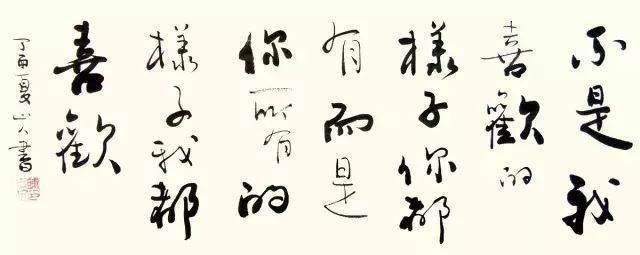 不是我
喜歡的
樣子你都
有而是
你所有的
樣子我都
喜歡
丁酉夏